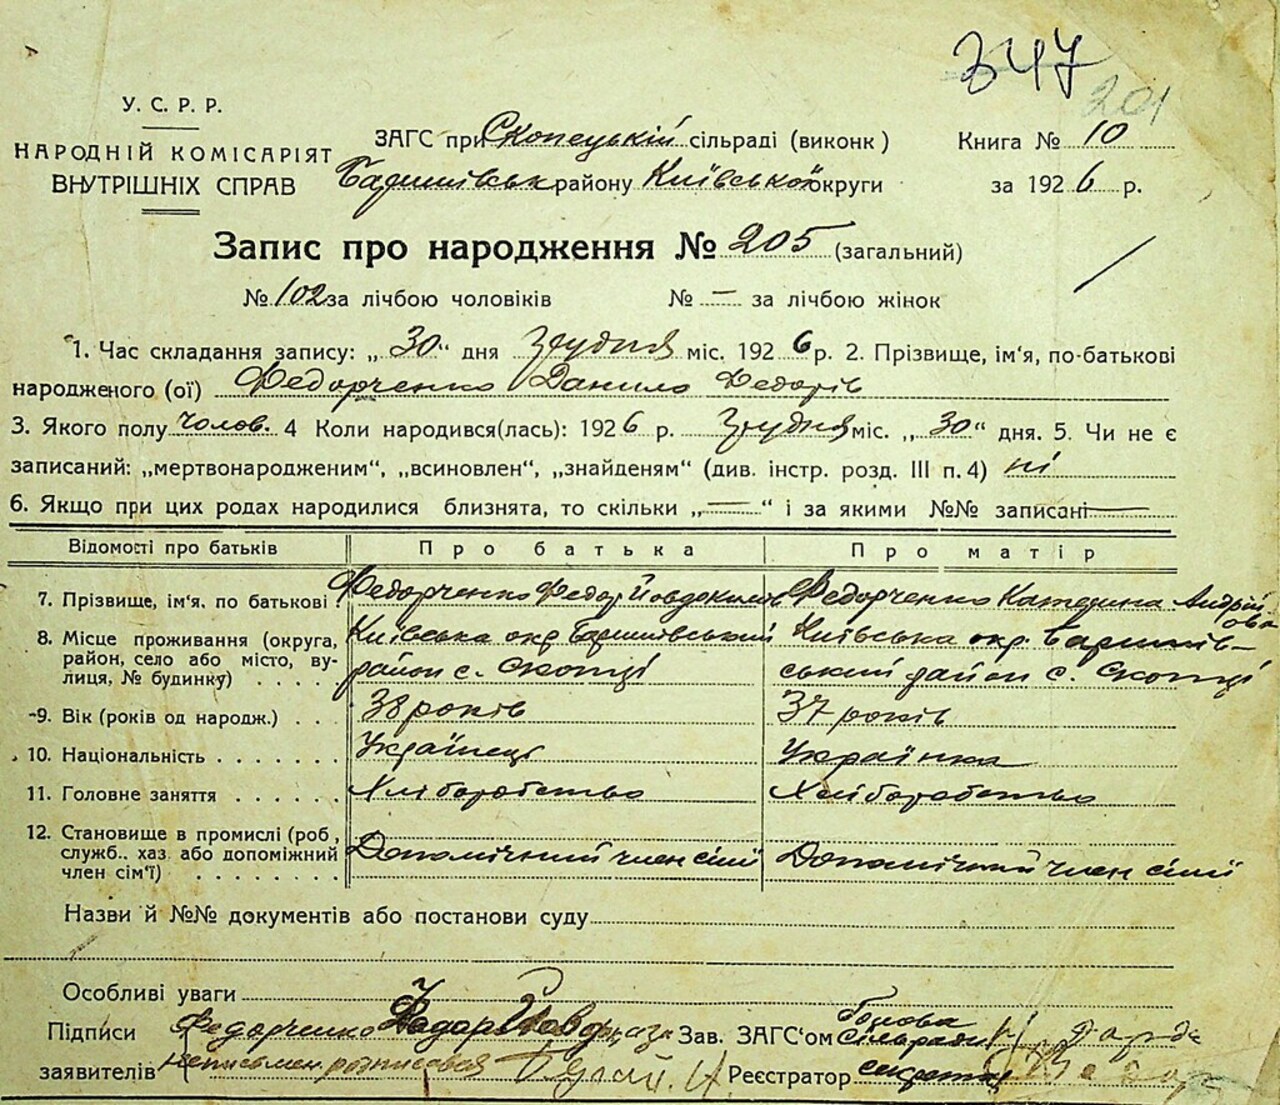 347
201
У. С. Р. Р.
НАРОДНІЙ КОМІСАРІЯТ
ВНУТРІШНІХ СПРАВ
ЗАГС при Скопецькій сільраді (виконк)
Баришівськ району Київської округи
Книга № 10
за 1926 р.
Запис про народження № 205 (загальний)
№ 102 за лічбою чоловіків № — за лічбою жінок
1. Час складання запису: „30" дня Грудня міс. 1926 р. 2. Прізвище, ім'я, по-батькові
народженого (ої) Федорченко Данило Федорів
3. Якого полу чолов. 4 Коли народився(лась): 1926 р. Грудня міс. „30" дня. 5. Чи не є
записаний: „мертвонародженим", „всиновлен", „знайденям" (див. інстр. розд. III п. 4) ні
6. Якщо при цих родах народилися близнята, то скільки „—" і за якими №№ записані —
Відомості про батьків Про батька Про матір
7. Прізвище, ім'я, по батькові Федорченко Федор Йовдокимов Федорченко Катерина Андрійова
8. Місце проживання (округа, район, село або місто, вулиця, № будинку) . . . . Київська окр. Баришівський район с. Скопці Київська окр. Баришівський район с. Скопці
9. Вік (років од народж.) . . . 38 років 37 років
10. Національність . . . . . . . Українець Українка
11. Головне заняття . . . . . . Хліборобство Хліборобство
12. Становище в промислі (роб, служб.. хаз. або допоміжний член сім'ї) . . . . . . . . Допомічний член сімї Допомічний член сімї
Назви й №№ документів або постанови суду
Особливі уваги
Підписи Федорченко Федор Зав. ЗАГС'ом Голова сільради
заявителів неписьмен. розписався Реєстратор секретар